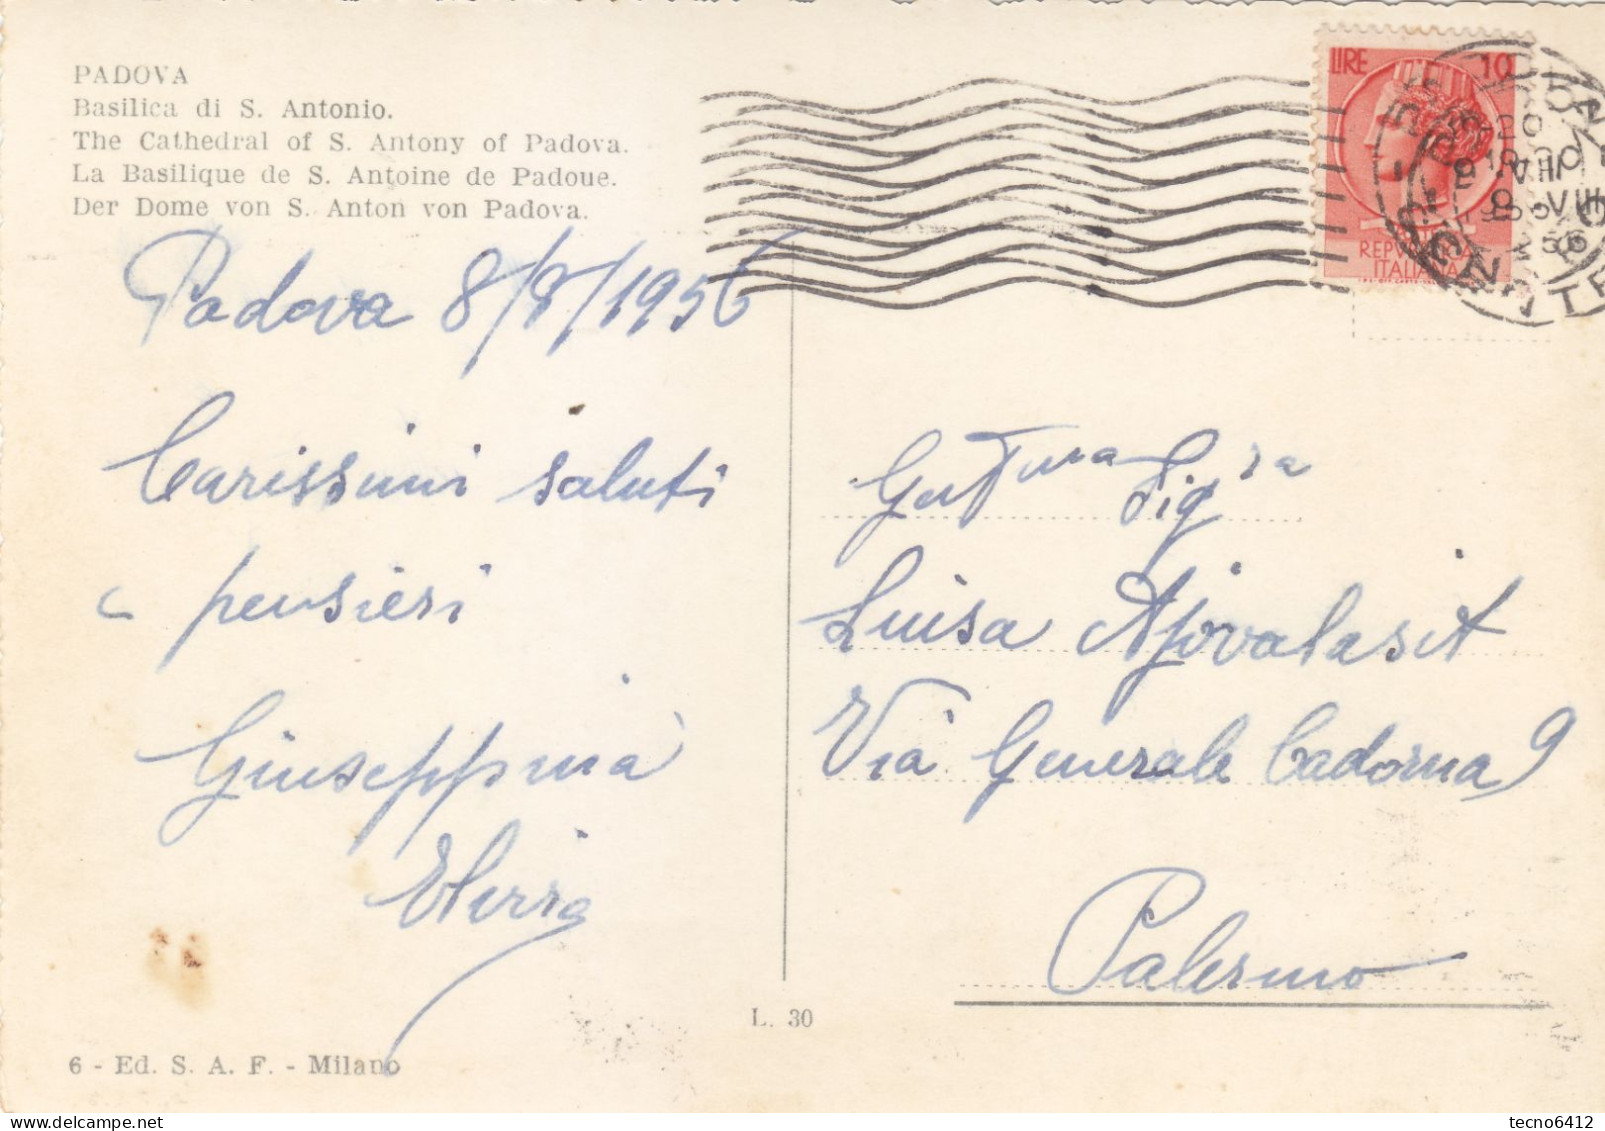 PADOVA
Basilica di S. Antonio.
The Cathedral of S. Antony of Padova.
La Basilique de S. Antoine de Padoue.
Der Dome von S. Anton von Padova.
Padova 8/8/1956
Carissimi saluti
e pensieri
Giuseppina
LIRE 10
REPUBBLICA
ITALIANA
Gent.ma Sig.ra
Luisa Ajovalasit
Via Generale Cadorna 9
Palermo
L. 30
6 - Ed. S. A. F. - Milano
tecno6412